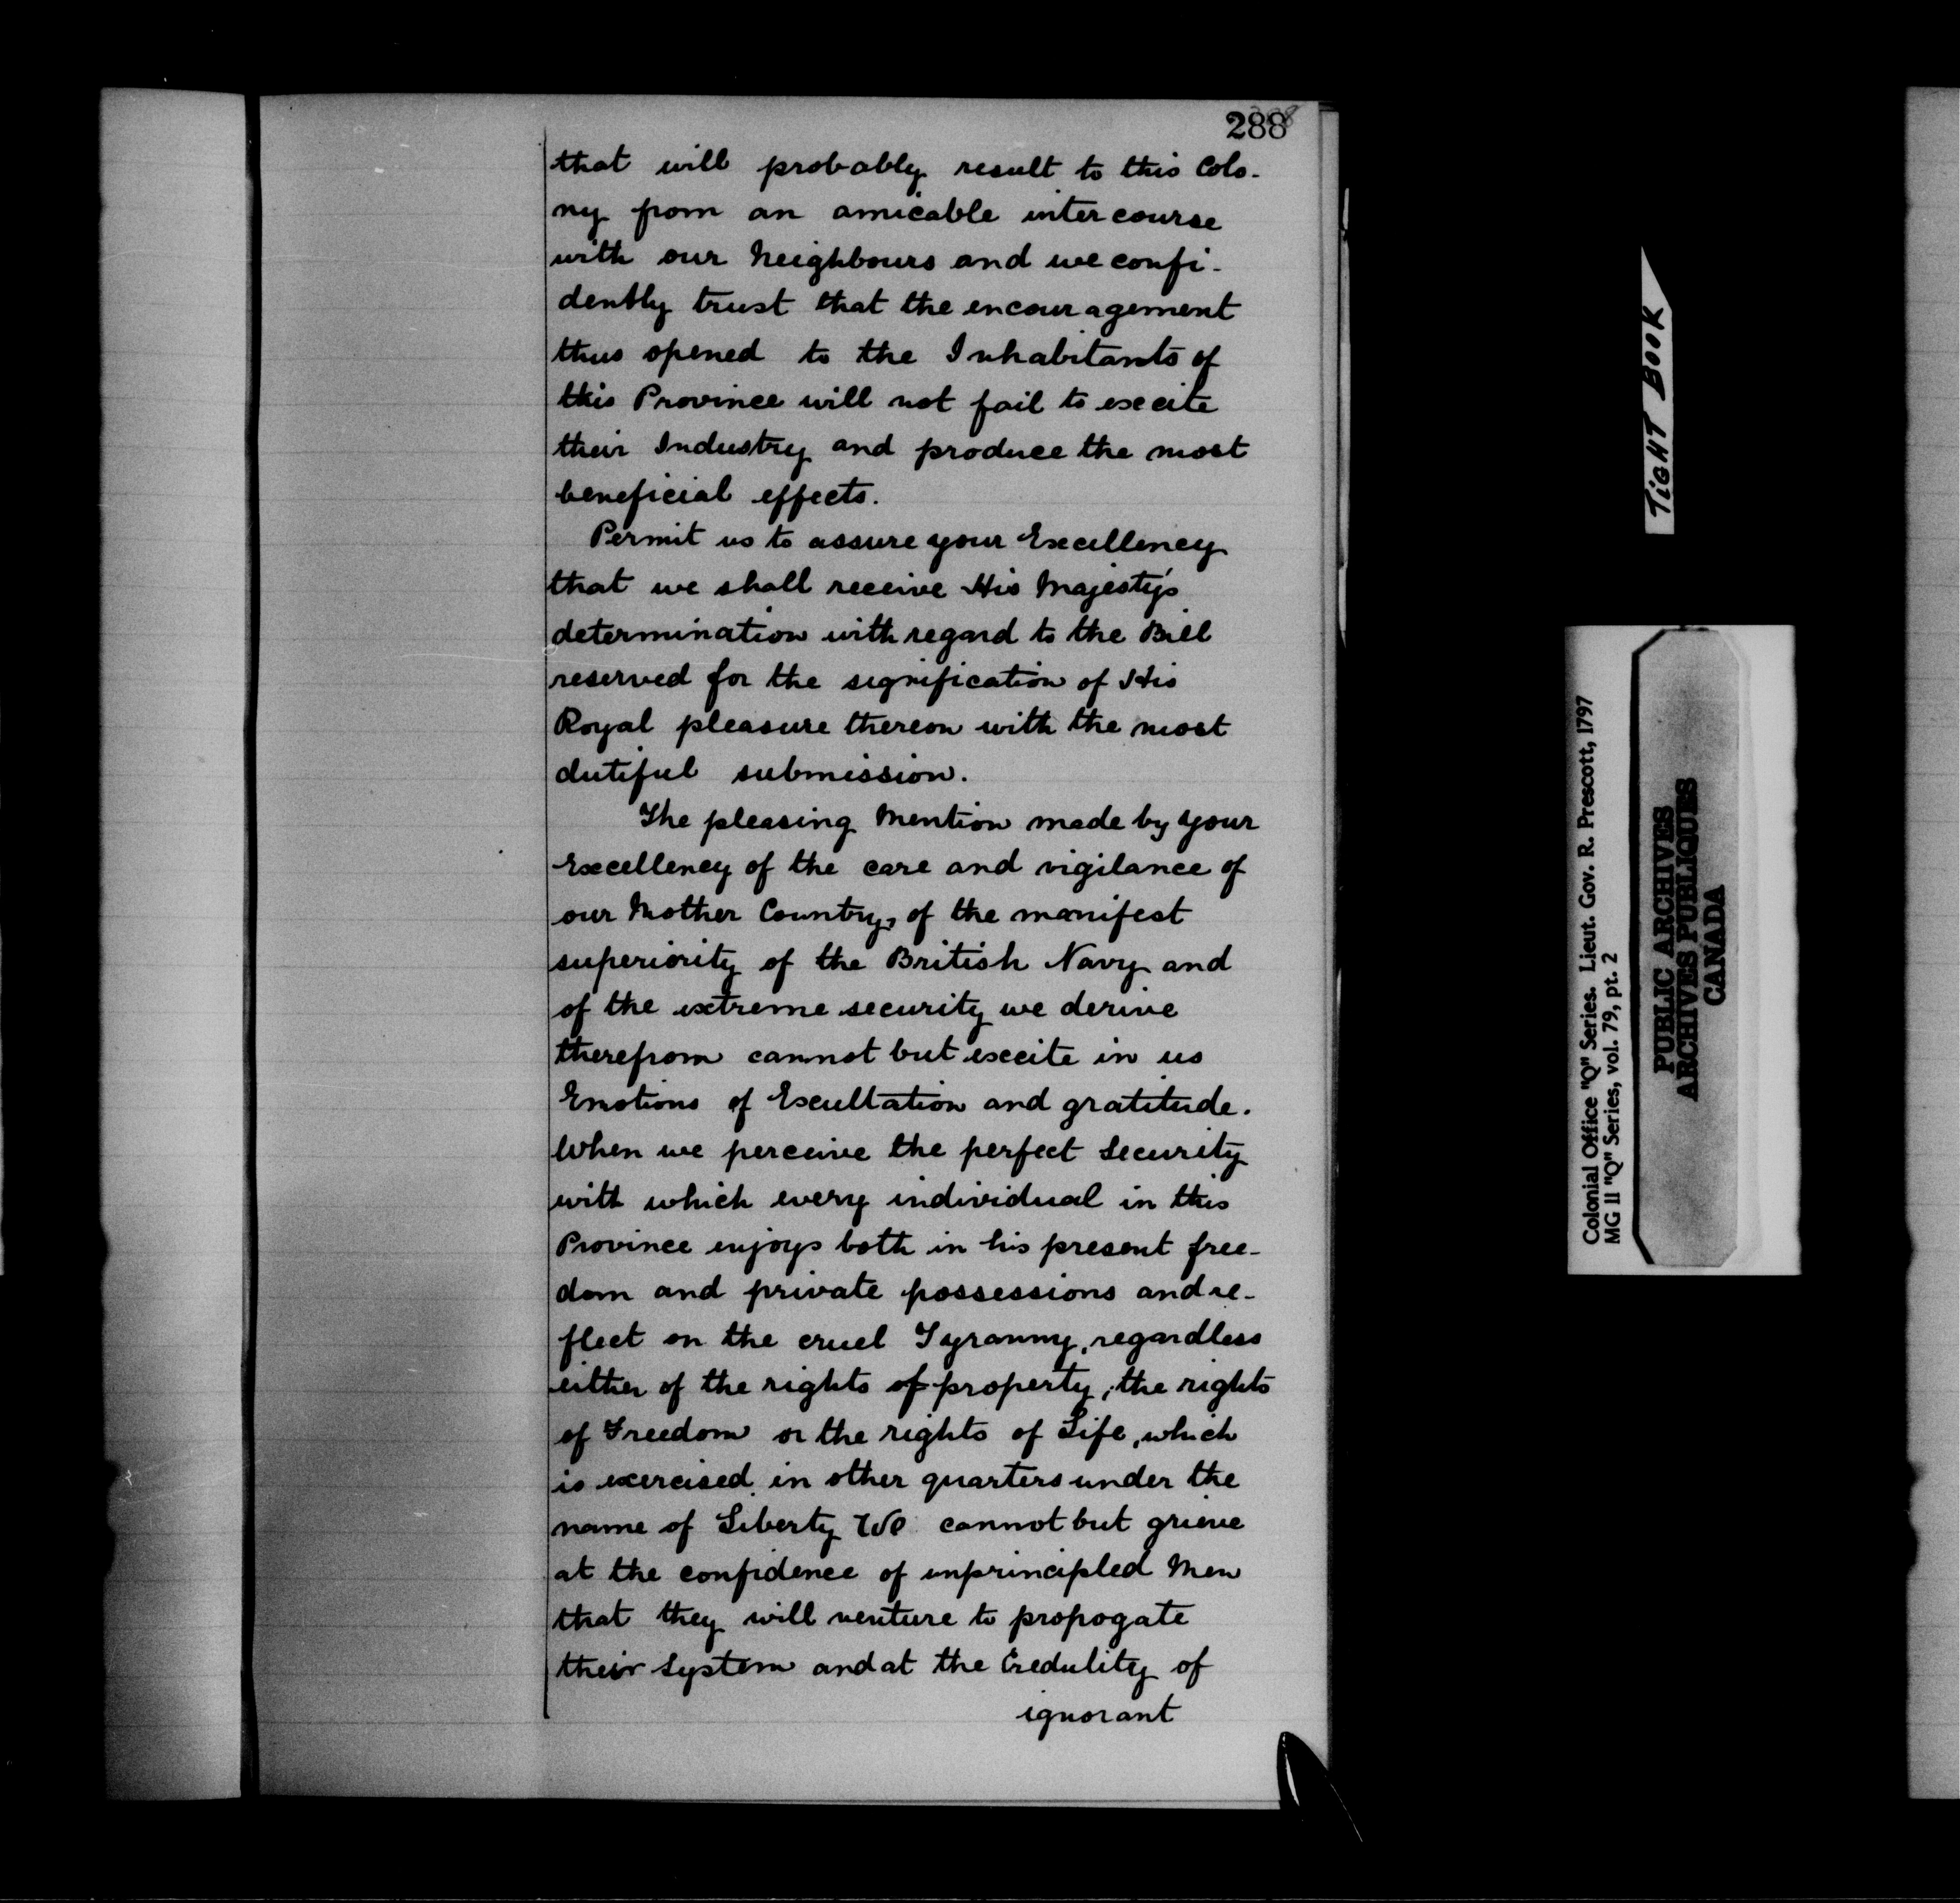 288
that will probably result to this Colo-
ny from an amicable intercourse
with our Neighbours and we confi-
dently trust that the encouragement
thus opened to the Inhabitants of
this Province will not fail to excite
their Industry and produce the most
beneficial effects.
Permit us to assure your Excellency
that we shall receive His Majesty's
determination with regard to the Bill
reserved for the signification of His
Royal pleasure thereon with the most
dutiful submission.
The pleasing Mention made by your
Excellency of the care and vigilance of
our Mother Country, of the manifest
superiority of the British Navy and
of the extreme security we derive
therefrom cannot but excite in us
Emotions of Exultation and gratitude.
When we perceive the perfect Security
with which every individual in this
Province enjoys both in his present free-
dom and private possessions and re-
flect on the cruel Tyranny, regardless
either of the rights of property, the rights
of Freedom or the rights of Life, which
is exercised in other quarters under the
name of Liberty We cannot but grieve
at the confidence of unprincipled Men
that they will venture to propogate
their System and at the Credulity of
ignorant
TIGHT BOOK
Colonial Office "Q" Series. Lieut. Gov. R. Prescott, 1797
MG 11 "Q" Series, vol. 79, pt. 2
PUBLIC ARCHIVES
ARCHIVES PUBLIQUES
CANADA